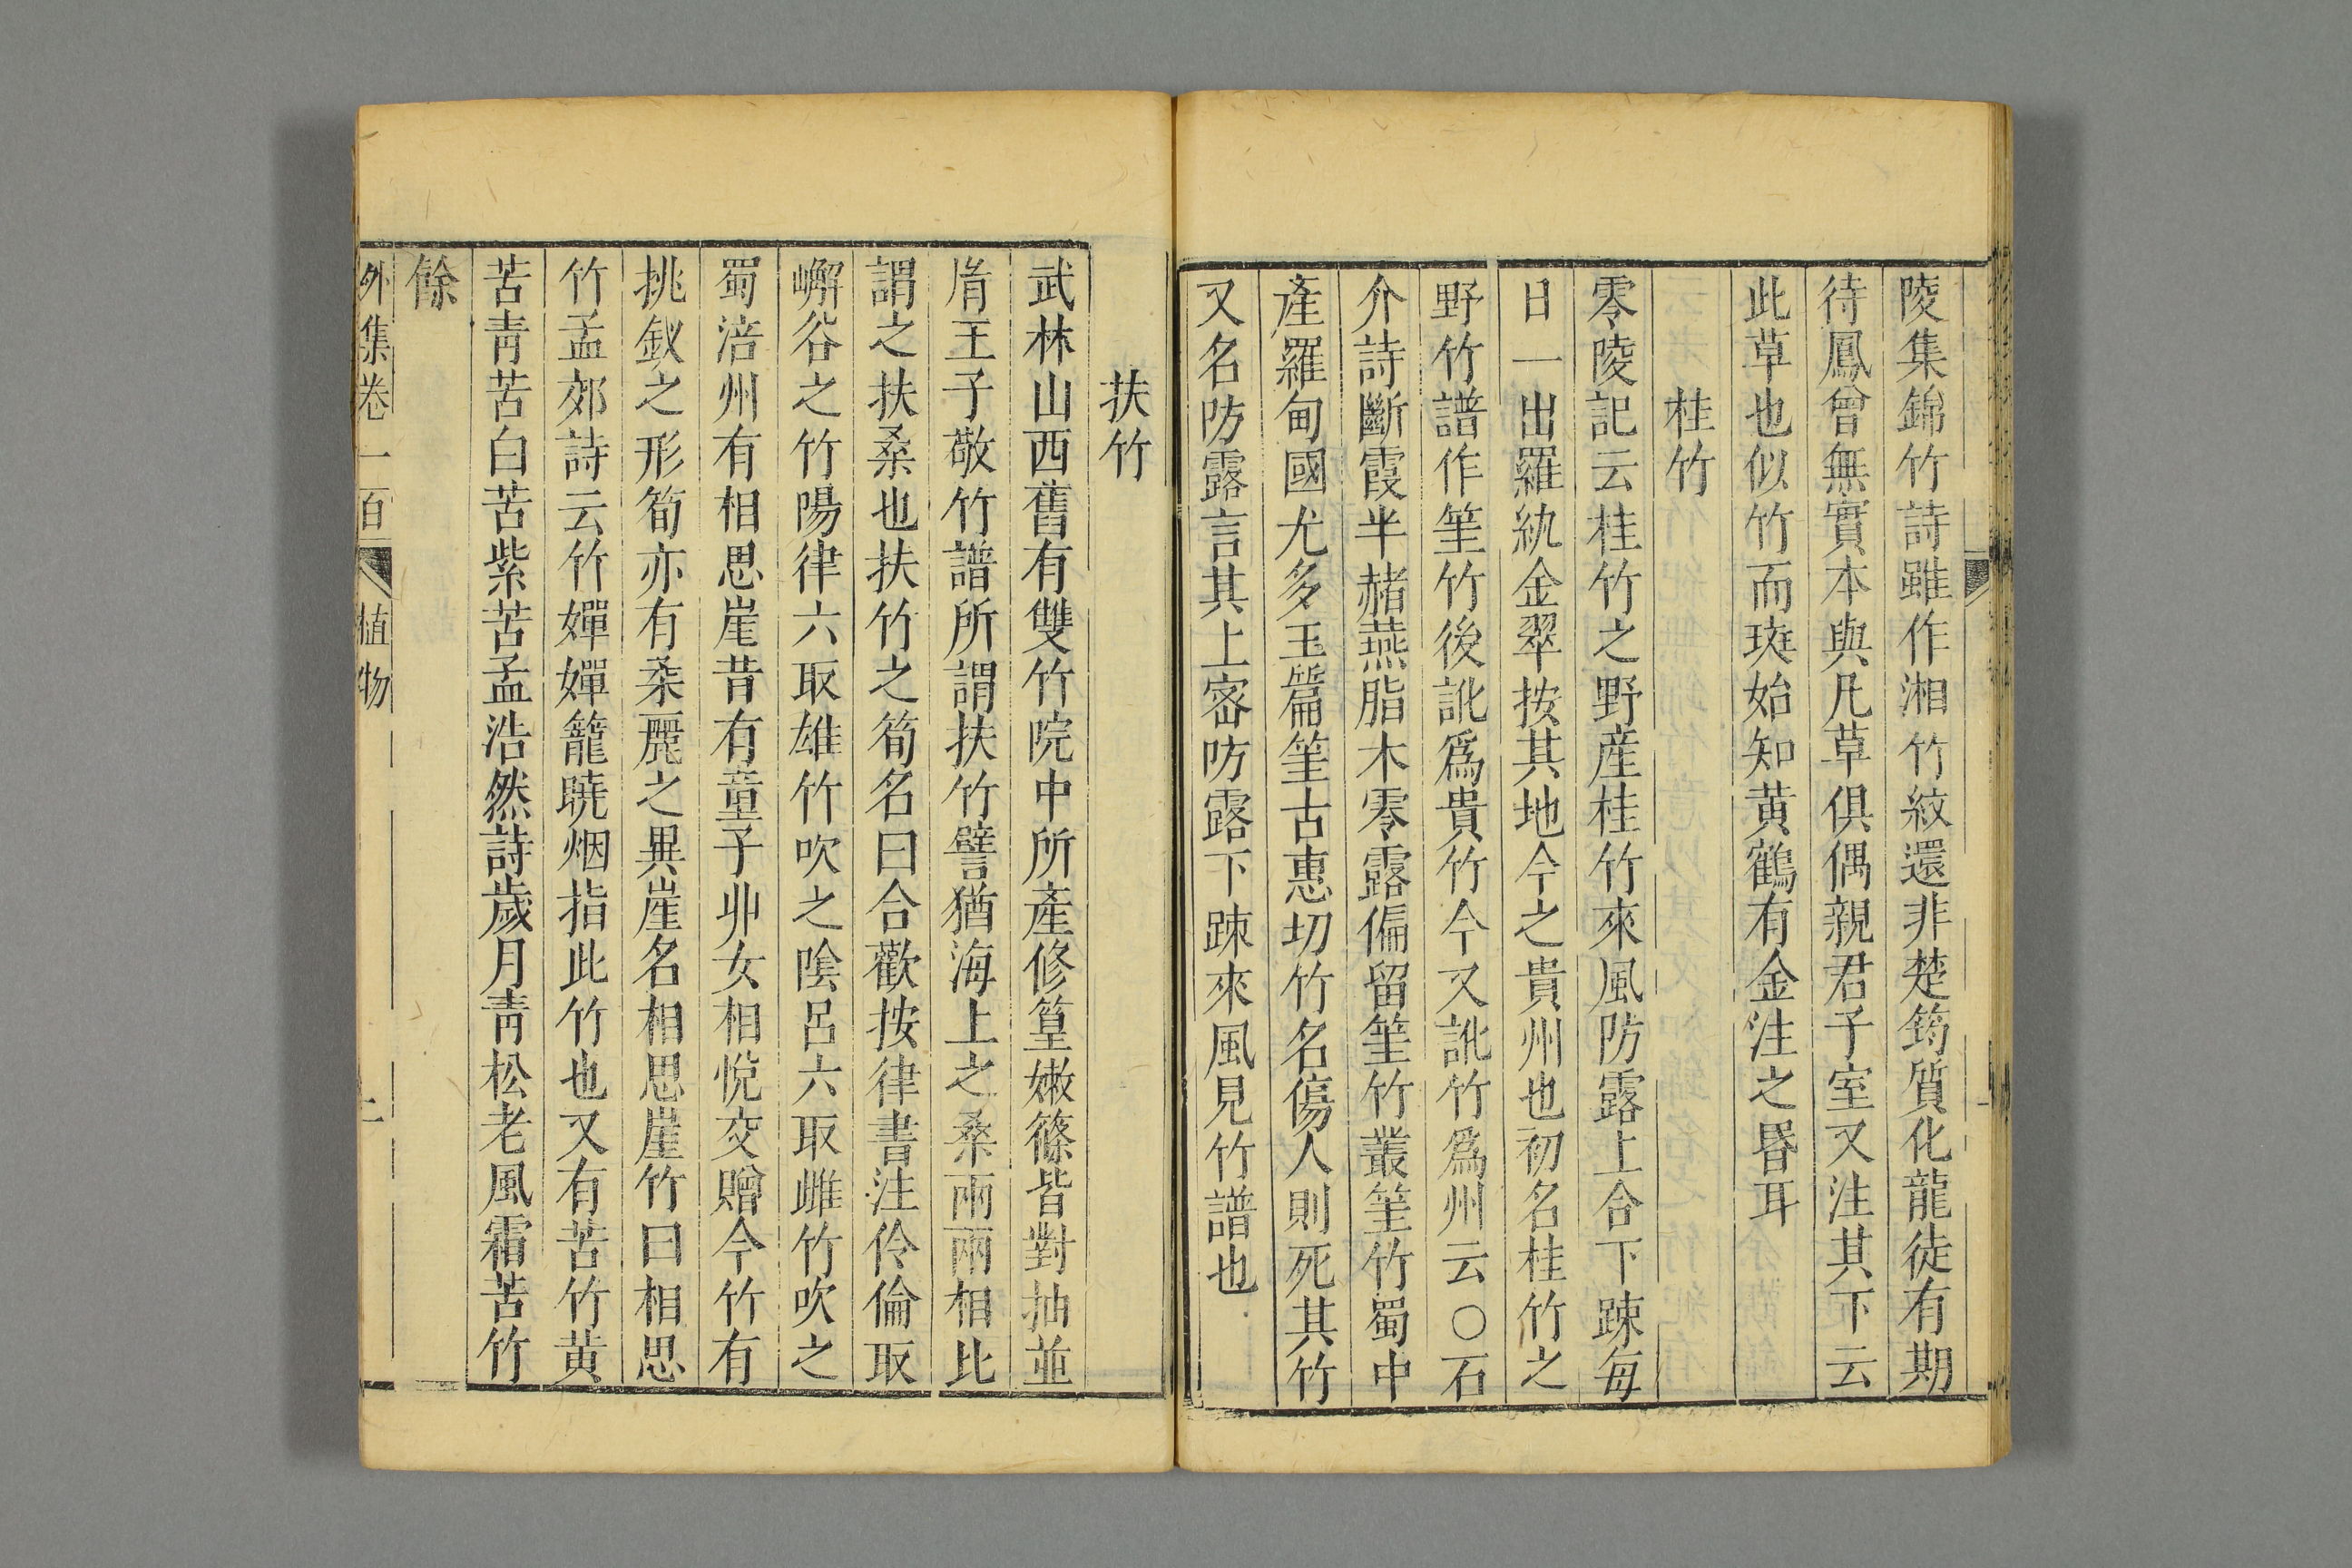 陵集錦竹詩雖作湘竹紋還非楚筠質化龍徒有期
待鳳曾無實本與凡草俱偶親君子室又注其下云
此草也似竹而斑始知黄鶴有金注之昬耳
桂竹
零陵記云桂竹之野産桂竹來風防露上合下踈每
日一出羅紈金翠按其地今之貴州也初名桂竹之
野竹譜作筀竹後訛爲貴竹今又訛竹爲州云〇石
介詩斷霞半赭燕脂木零露偏留筀竹叢筀竹蜀中
產羅甸國尤多玉篇筀古惠切竹名傷人則死其竹
又名防露言其上宻防露下踈來風見竹譜也
扶竹
武林山西舊有雙竹院中所產修篁嫩篠皆對抽並
胤王子敬竹譜所謂扶竹譬猶海上之桑兩兩相比
謂之扶桑也扶竹之筍名曰合歡按律書注伶倫取
嶰谷之竹陽律六取雄竹吹之陰呂六取雌竹吹之
蜀涪州有相思崖昔有童子丱女相悅交贈今竹有
挑釵之形筍亦有柔麗之異崖名相思崖竹曰相思
竹孟郊詩云竹嬋嬋籠曉烟指此竹也又有苦竹黄
苦青苦白苦紫苦孟浩然詩歲月青松老風霜苦竹
餘
外集卷一百 植物